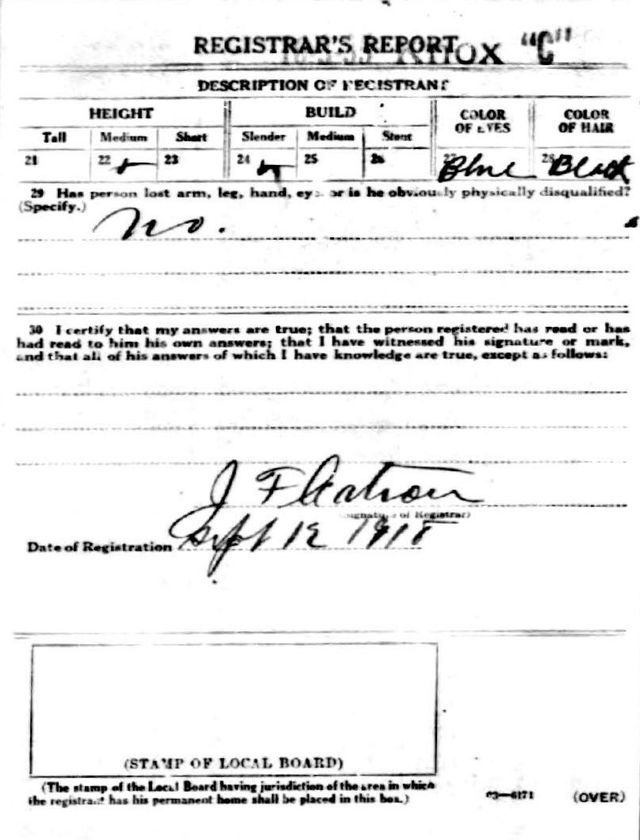 REGISTRAR'S REPORT
KNOX "C"
DESCRIPTION OF REGISTRANT
HEIGHT BUILD COLOR OF EYES COLOR OF HAIR
Tall Medium Short Slender Medium Stout
21 22 23 24 25 26 27 Blue 28 Black
29 Has person lost arm, leg, hand, eye, or is he obviously physically disqualified?
(Specify.)
No.
30 I certify that my answers are true; that the person registered has read or has
had read to him his own answers; that I have witnessed his signature or mark,
and that all of his answers of which I have knowledge are true, except as follows:
J F
(Signature of Registrar)
Date of Registration Sept 12 1918
(STAMP OF LOCAL BOARD)
(The stamp of the Local Board having jurisdiction of the area in which
the registrant has his permanent home shall be placed in this box.)
03—6171 (OVER)